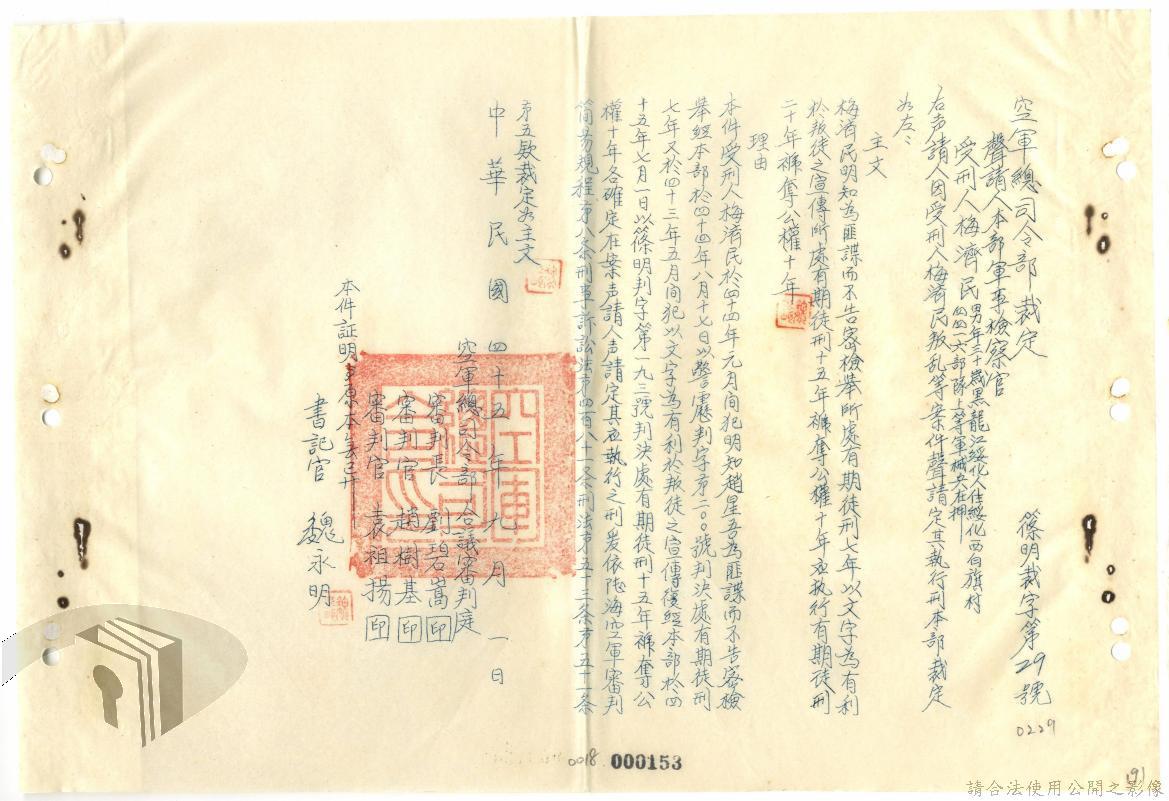 空軍總司令部裁定
篠明裁字第29號
聲請人本部軍事檢察官
受刑人梅濟民男年三十歲黑龍江綏化人住綏化西白旗村
四四一六部隊上等軍械兵在押
右声請人因受刑人梅濟民叛乱等案件聲請定其執行刑本部裁定
如左:
主文
梅濟民明知為匪諜而不告密檢舉所處有期徒刑七年以文字為有利
於叛徒之宣傳所處有期徒刑十五年褫奪公權十年应执行有期徒刑
二十年褫奪公權十年
理由
本件受刑人梅濟民於四十四年元月间犯明知趙星吾為匪諜而不告密檢
舉經本部於四十四年八月十七日以警靂判字第二〇〇號判决處有期徒刑
七年又於四十三年五月间犯以文字為有利於叛徒之宣傳復經本部於四
十五年七月一日以篠明判字第一九三號判决處有期徒刑十五年褫奪公
權十年各確定在案声請人声請定其应執行之刑爰依陸海空軍審判
简易規程第八条刑事訴訟法第四百八十一条刑法第五十三条第五十一条
第五款裁定如主文
中華民國四十五年九月一日
空軍總司令部合議審判庭
審判長 劉碧嵩 印
審判官 趙樹基 印
審判官 袁祖揚 印
本件証明与原本無异
書記官 魏永明
0229
0018
000153
191
請合法使用公開之影像